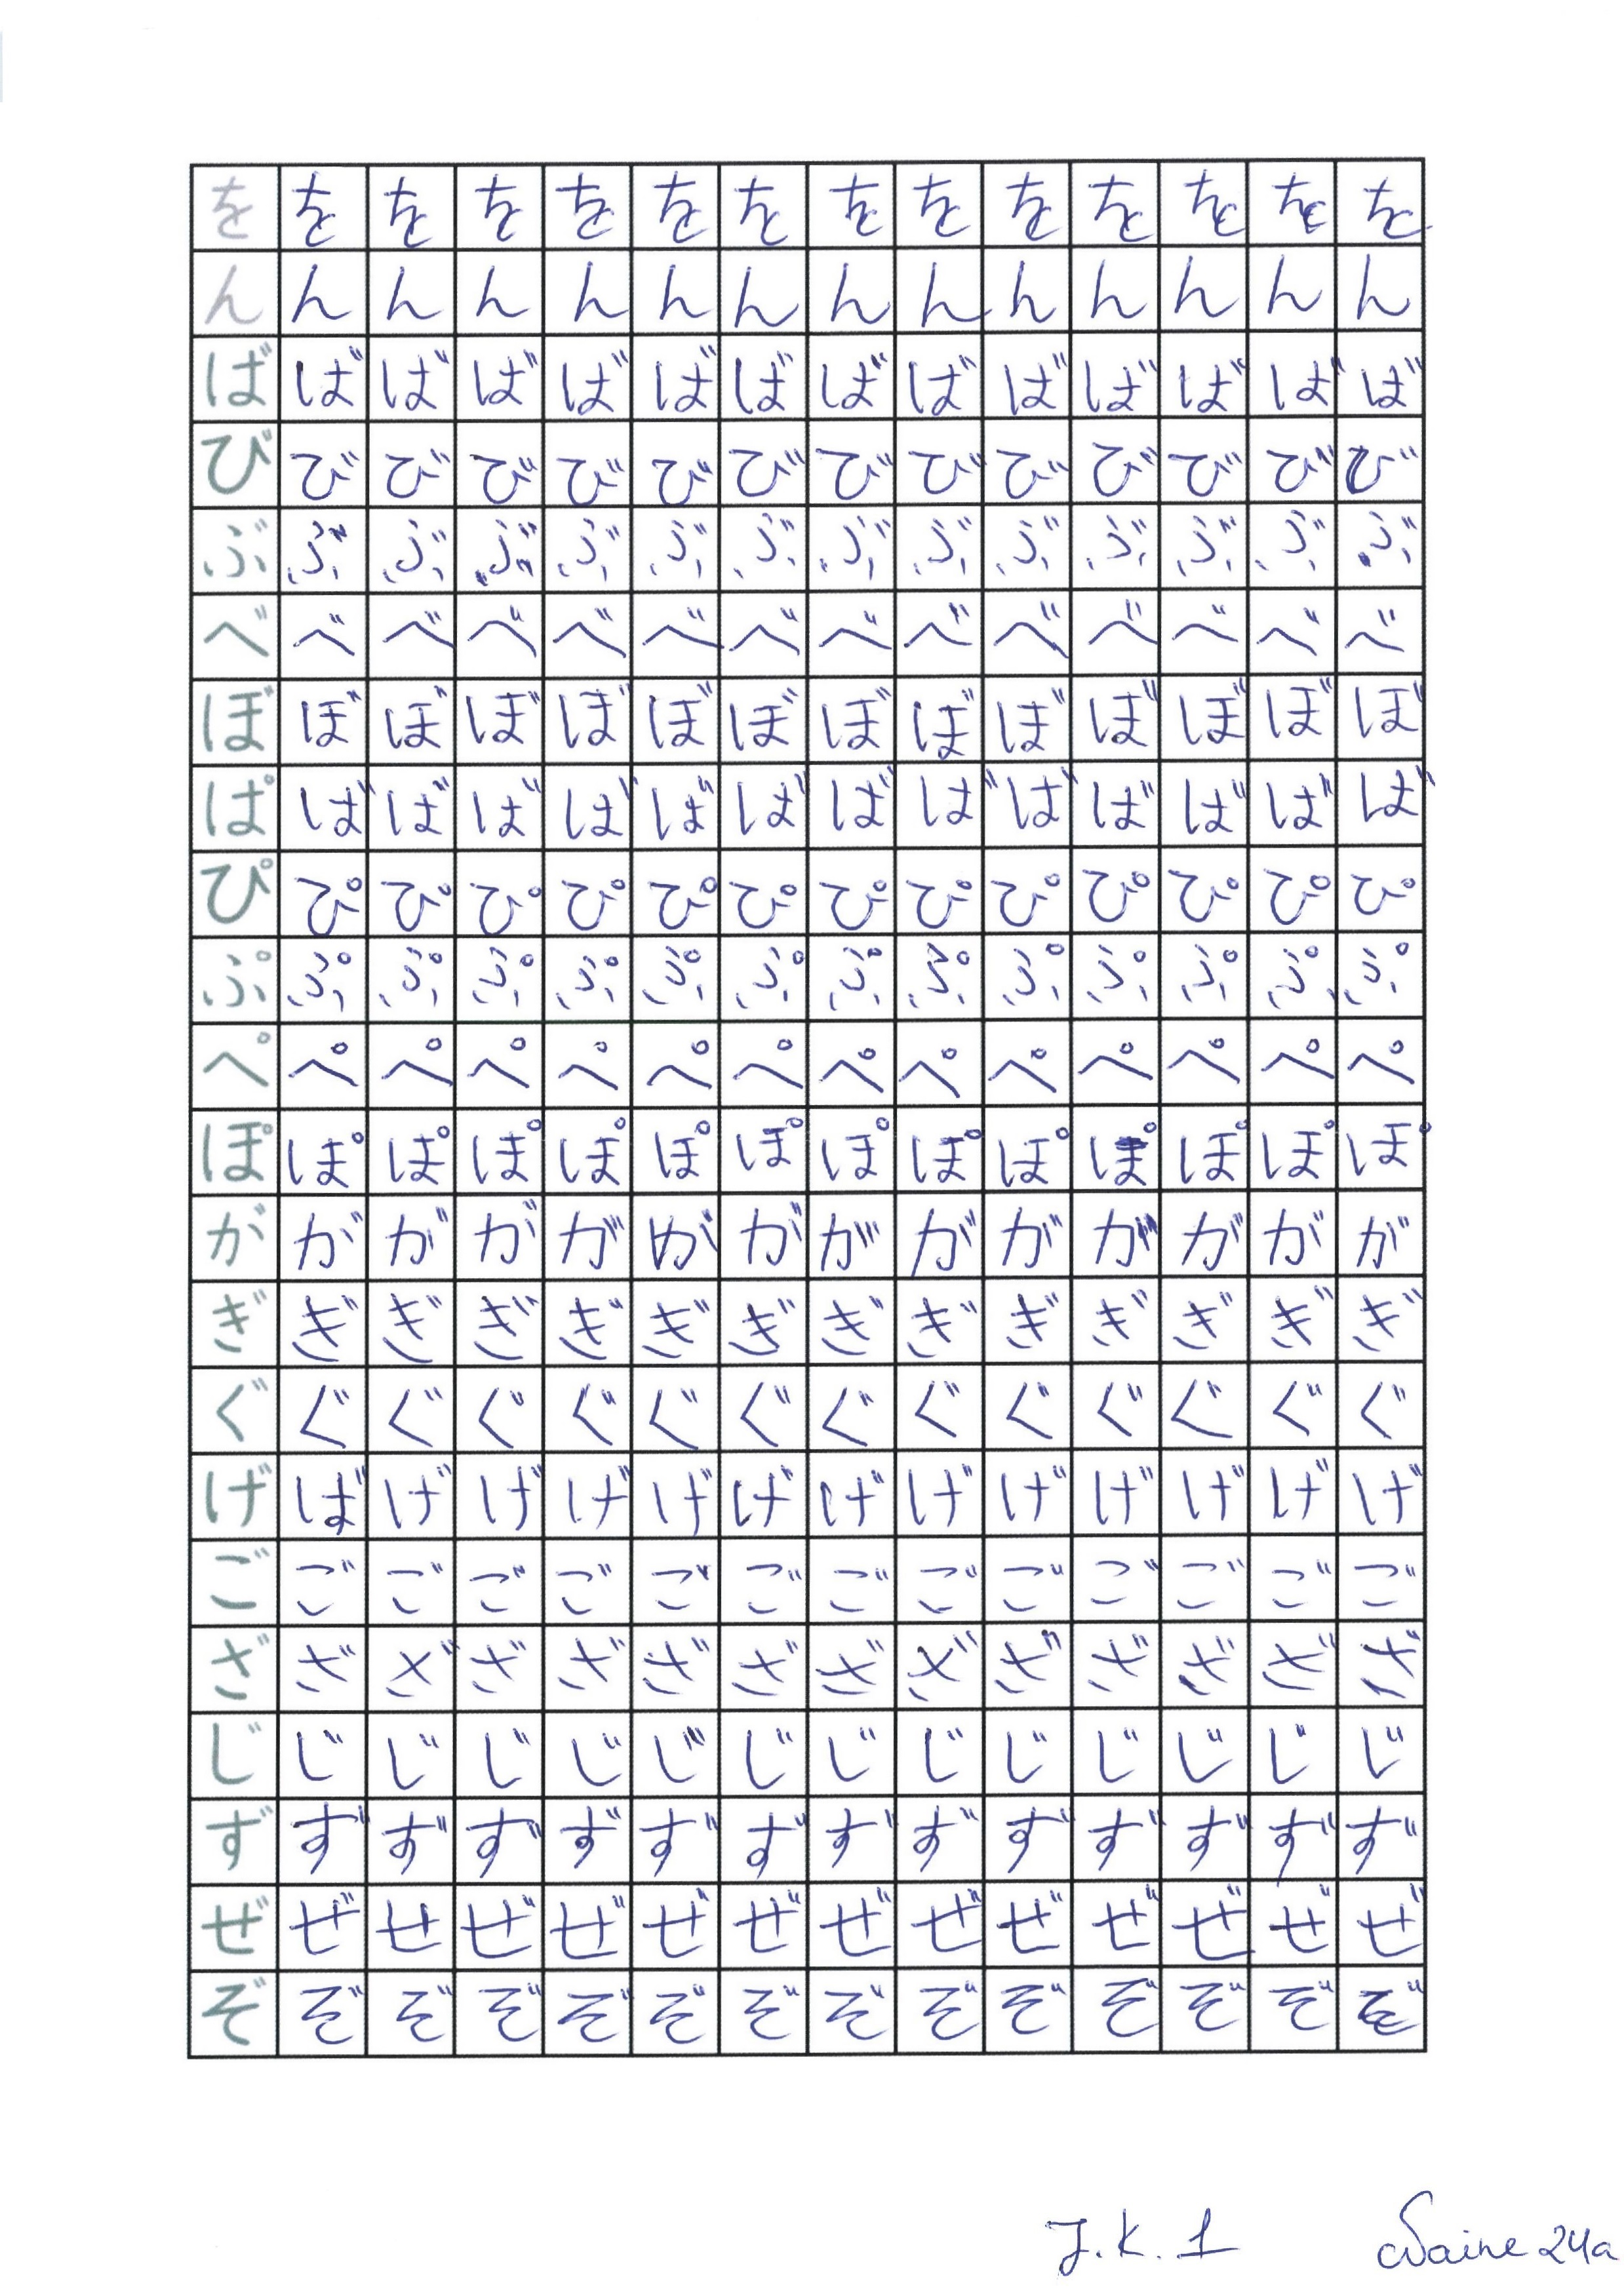 を を を を を を を を を を を を を を
ん ん ん ん ん ん ん ん ん ん ん ん ん ん
ば ば ば ば ば ば ば ば ば ば ば ば ば ば
び び び び び び び び び び び び び び
ぶ ぶ ぶ ぶ ぶ ぶ ぶ ぶ ぶ ぶ ぶ ぶ ぶ ぶ
べ べ べ べ べ べ べ べ べ べ べ べ べ べ
ぼ ぼ ぼ ぼ ぼ ぼ ぼ ぼ ぼ ぼ ぼ ぼ ぼ ぼ
ぱ ば ば ば ば ば ば ば ば ば ば ば ば ば
ぴ ぴ ぴ ぴ ぴ ぴ ぴ ぴ ぴ ぴ ぴ ぴ ぴ ぴ
ぷ ぷ ぷ ぷ ぷ ぷ ぷ ぷ ぷ ぷ ぷ ぷ ぷ ぷ
ぺ ぺ ぺ ぺ ぺ ぺ ぺ ぺ ぺ ぺ ぺ ぺ ぺ ぺ
ぽ ぽ ぽ ぽ ぽ ぽ ぽ ぽ ぽ ぽ ぽ ぽ ぽ ぽ
が が が が が が が が が が が が が が
ぎ ぎ ぎ ぎ ぎ ぎ ぎ ぎ ぎ ぎ ぎ ぎ ぎ ぎ
ぐ ぐ ぐ ぐ ぐ ぐ ぐ ぐ ぐ ぐ ぐ ぐ ぐ ぐ
げ ば げ げ げ げ げ げ げ げ げ げ げ げ
ご ご ご ご ご ご ご ご ご ご ご ご ご ご
ざ ざ ざ ざ ざ ざ ざ ざ ざ ざ ざ ざ ざ ざ
じ じ じ じ じ じ じ じ じ じ じ じ じ じ
ず ず ず ず ず ず ず ず ず ず ず ず ず ず
ぜ ぜ せ ぜ ぜ ぜ ぜ ぜ ぜ ぜ ぜ ぜ ぜ ぜ
ぞ ぞ ぞ ぞ ぞ ぞ ぞ ぞ ぞ ぞ ぞ ぞ ぞ ぞ
J.K.1 24a